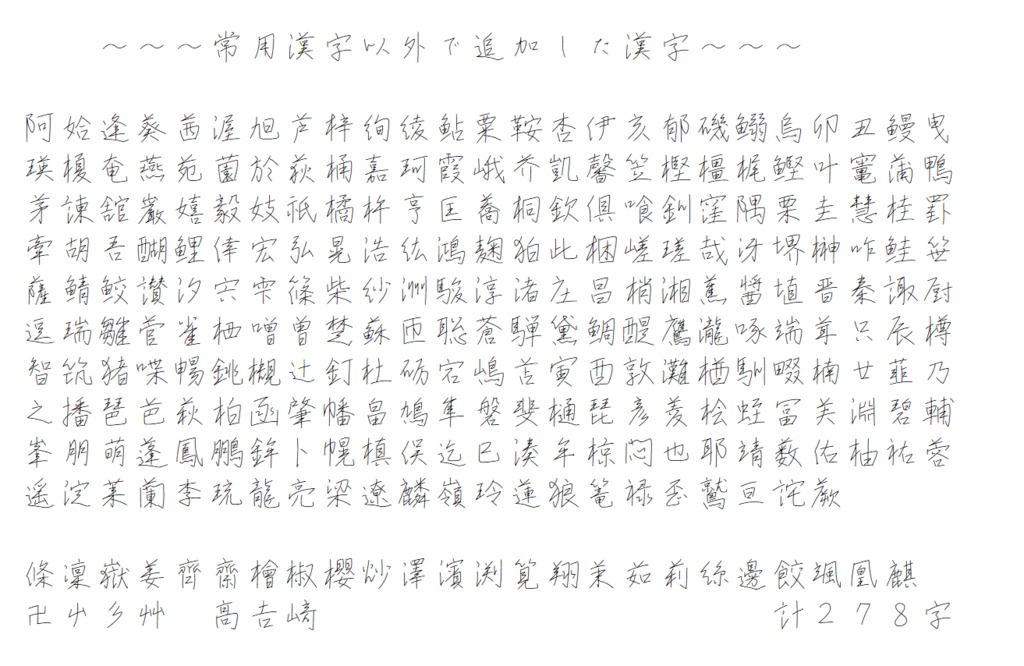 ～～～常用漢字以外で追加した漢字～～～
阿姶逢葵茜渥旭芦梓絢綾鮎粟鞍杏伊亥郁磯鰯烏卯丑鰻曳
瑛榎奄燕苑薗於荻桶嘉珂霞峨芥凱馨笠樫橿梶鰹叶竈蒲鴨
茅諌舘巌嬉毅妓祇橘杵亨匡蕎桐欽倶喰釧窪隅栗圭慧桂罫
牽胡吾醐鯉倖宏弘晃浩紘鴻麹狛此梱嵯瑳哉冴堺榊咋鮭笹
薩鯖鮫讃汐宍雫篠柴紗洲駿淳渚庄昌梢湘蕉醤埴晋秦諏厨
逗瑞雛菅雀栖噌曽楚蘇匝聡蒼騨黛鯛醍鷹瀧啄端茸只辰樽
智筑猪喋暢銚槻辻釘杜砺宕嶋苫寅酉敦灘楢馴畷楠廿韮乃
之播琶芭萩柏函肇幡畠鳩隼磐斐樋琵彦菱桧蛭冨芙淵碧輔
峯朋萌蓬鳳鵬鉾卜幌槙俣迄巳湊牟椋悶也耶靖薮佑柚祐蓉
遥淀莱蘭李琉龍亮梁遼麟嶺玲蓮狼篭禄歪鷲亘詫蕨
條凜嶽姜齊齋檜椒櫻炒澤濱渕筧翔秉茹莉絲邊餃颯凰麒
卍屮彡艸　髙𠮷﨑　計２７８字